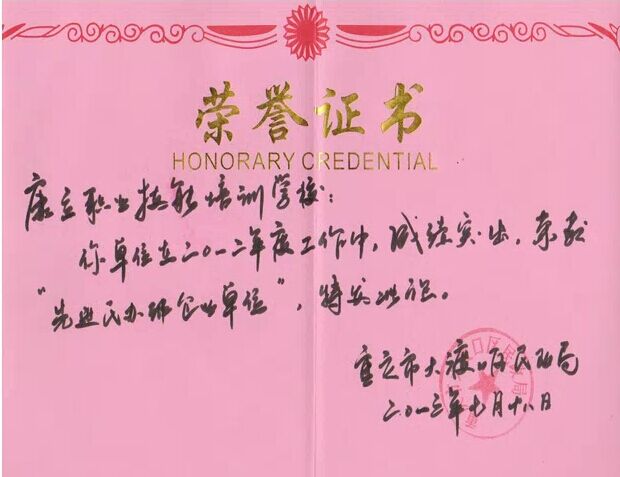 荣誉证书
HONORARY CREDENTIAL
康立职业技能培训学校：
你单位在二〇一二年度工作中，成绩突出，荣获
“先进民办非企业单位”，特发此证。
重庆市大渡口区民政局
二〇一三年七月十八日